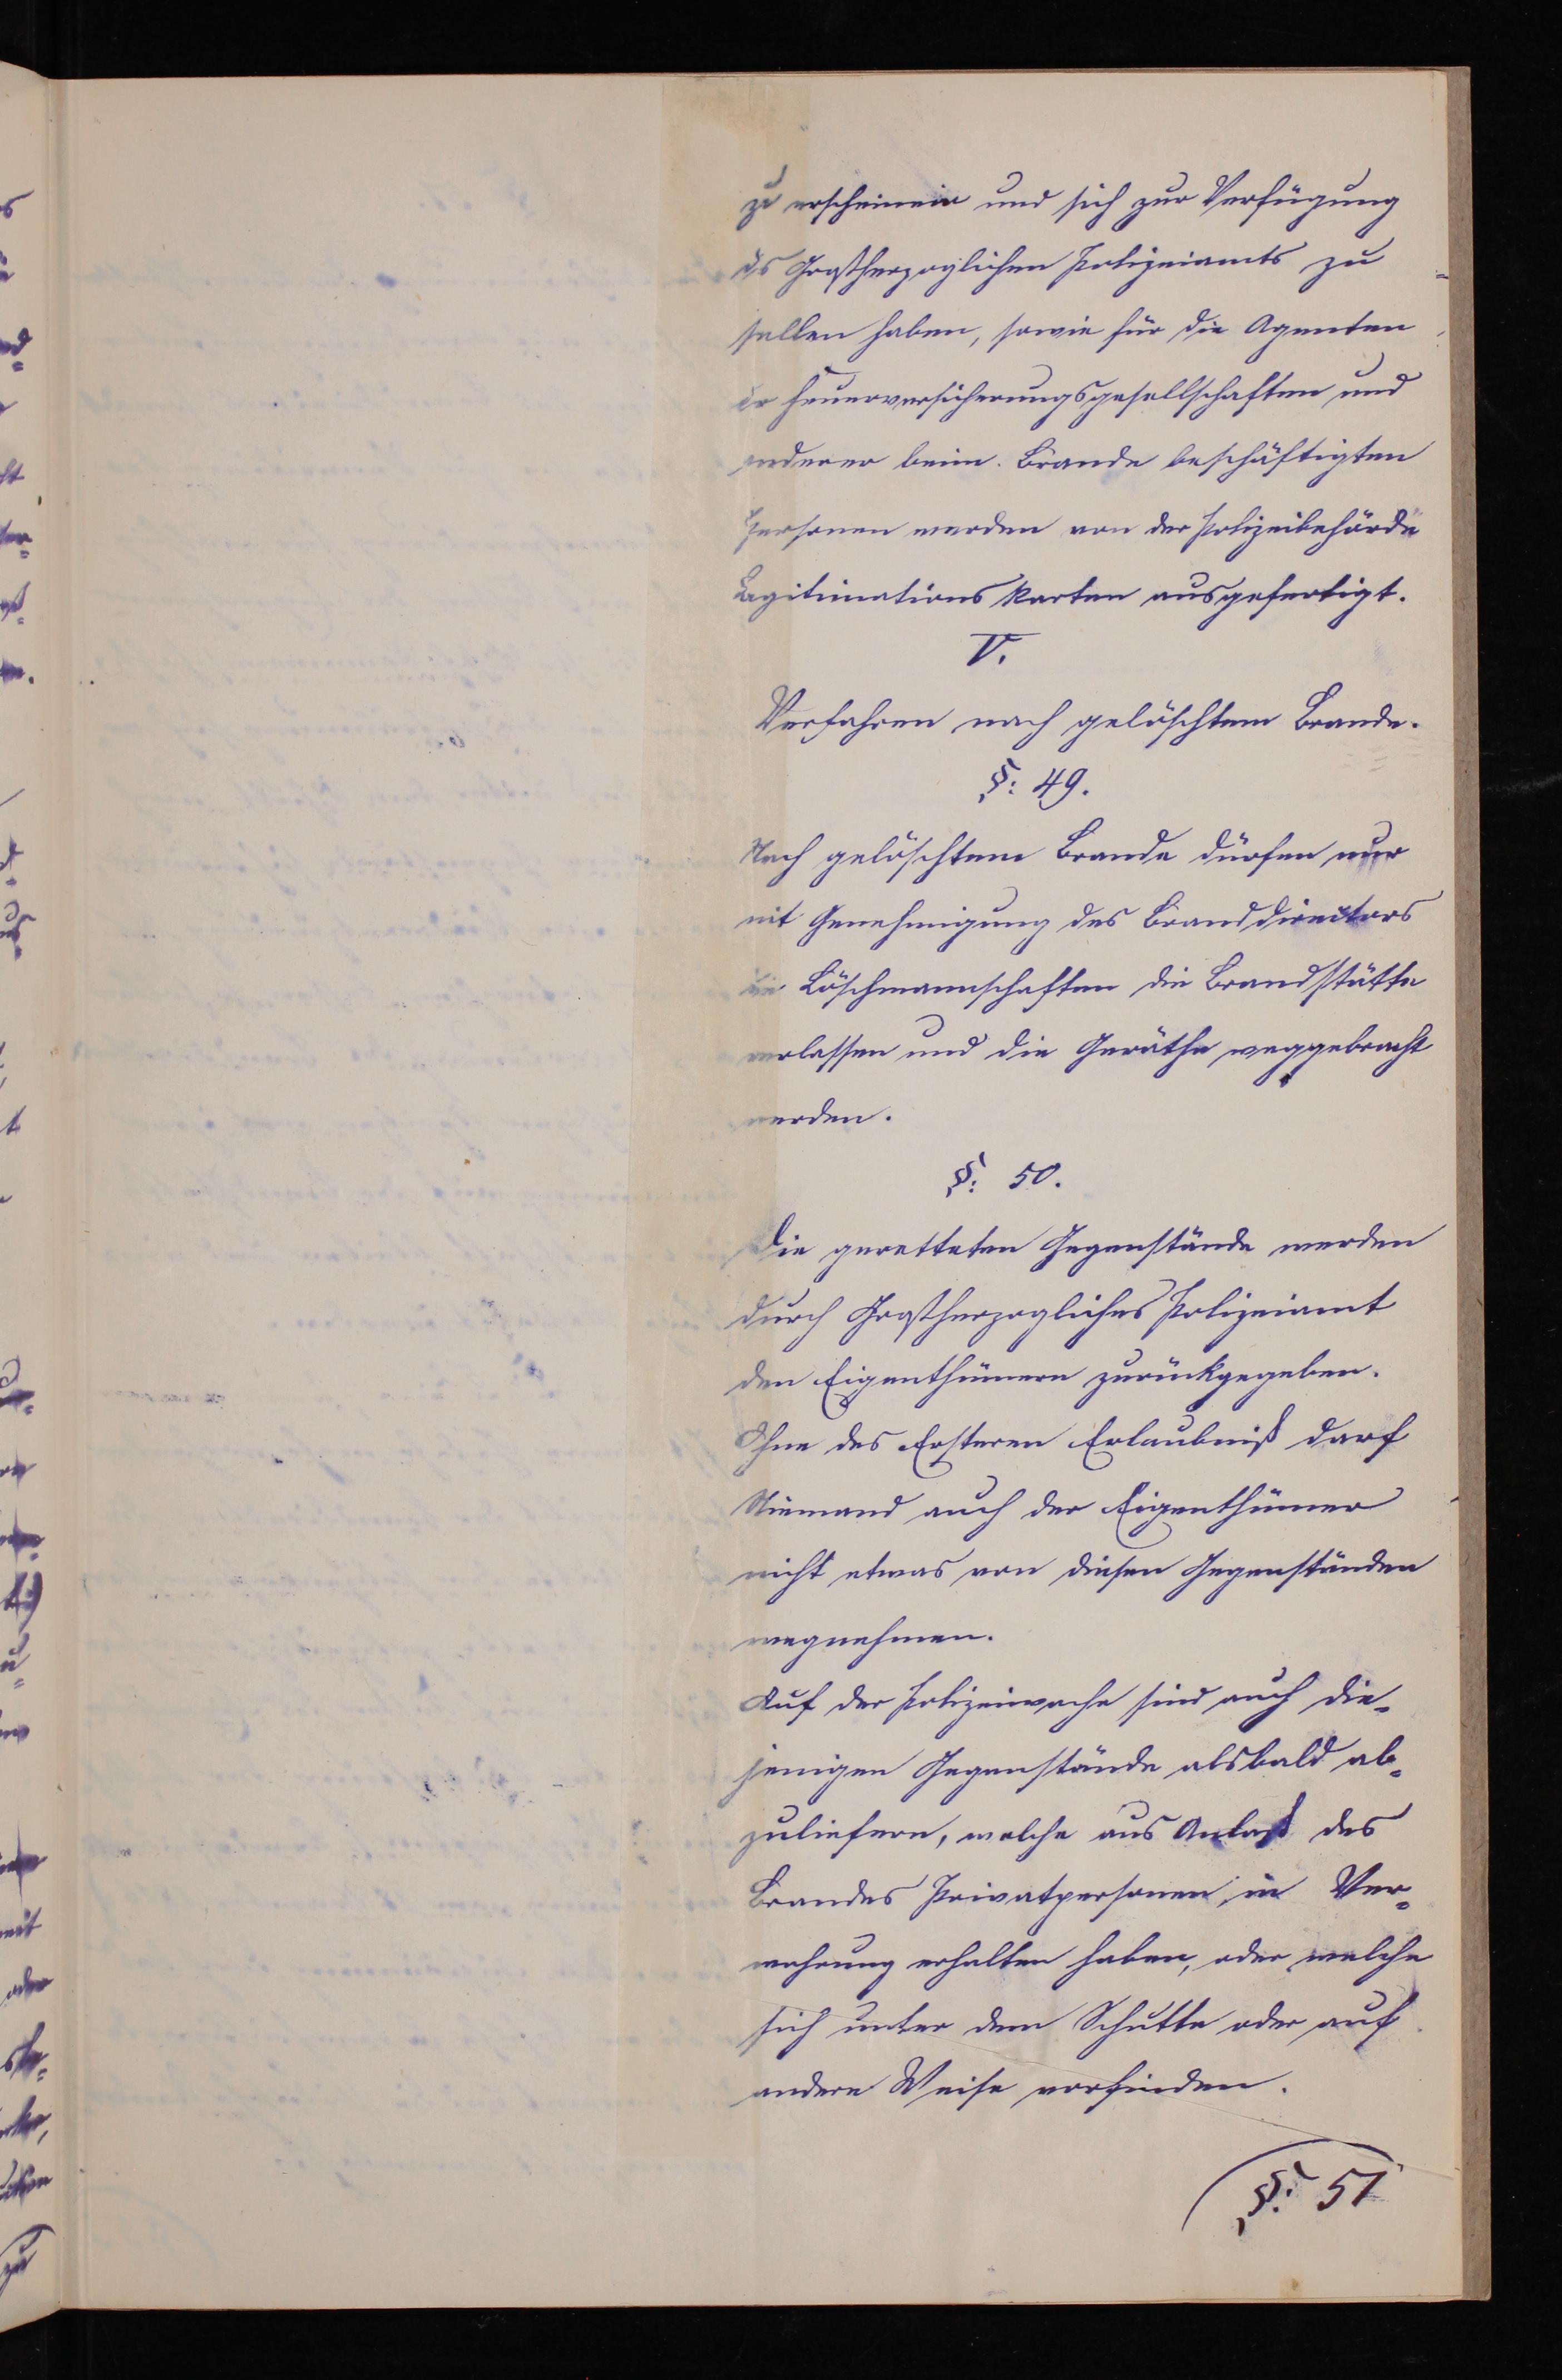 zu erscheinen und sich zur Verfügung
des Großherzoglichen Polizeiamts zu
stellen haben, sowie für die Agenten
der Feuerversicherungsgesellschaften und
anderer beim Brande beschäftigten
Personen werden von der Polizeibehörde
Legitimationskarten ausgefertigt.
V.
Verfahren nach gelöschtem Brande.
§: 49.
Nach gelöschtem Brande dürfen nur
mit Genehmigung des Branddirectors
die Löschmannschaften die Brandstätte
verlassen und die Geräthe weggebracht
werden.
§: 50.
Die geretteten Gegenstände werden
durch Großherzogliches Polizeiamt
den Eigenthümern zurückgegeben.
Ohne des Ersteren Erlaubniß darf
Niemand auch der Eigenthümer
nicht etwas von diesen Gegenständen
wegnehmen.
Auf der Polizeiwache sind auch die-
jenigen Gegenstände alsbald ab-
zuliefern, welche aus Anlaß des
Brandes Privatpersonen in Ver-
wahrung erhalten haben, oder welche
sich unter dem Schutte oder auf
andere Weise vorfinden.
§: 51